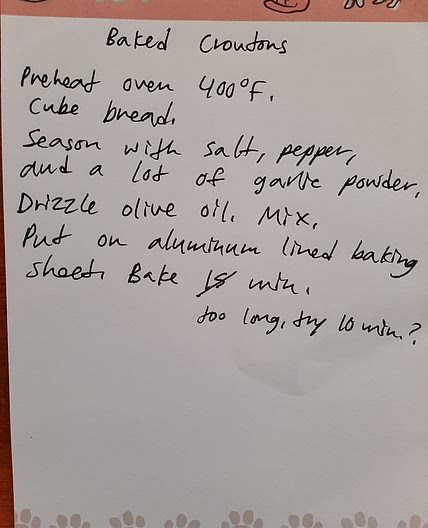 Baked Croutons
Preheat oven 400°F.
Cube bread.
Season with salt, pepper,
and a lot of garlic powder.
Drizzle olive oil. Mix.
Put on aluminum lined baking
sheet. Bake 15 min.
too long, try 10 min.?